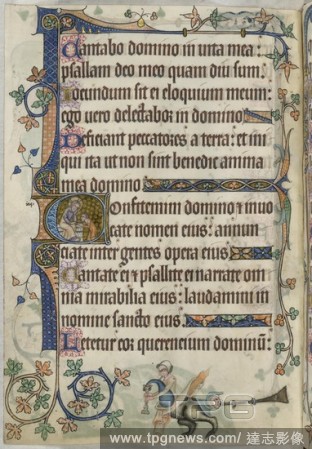 Cantabo domino in uita mea:
psallam deo meo quam diu sum.
Iocundum sit ei eloquium meum:
ego uero delectabor in domino
Defitiant peccatores a terra: et ini
qui ita ut non sint benedic anima
mea domino
Confitemini domino et inuo
cate nomen eius: annun
ciate inter gentes opera eius
Cantate ei et psallite ei narrate om
nia mirabilia eius: laudamini in
nomine sancto eius
Letetur cor querencium dominum:
TPG
www.tpgnews.com/ 達志影像